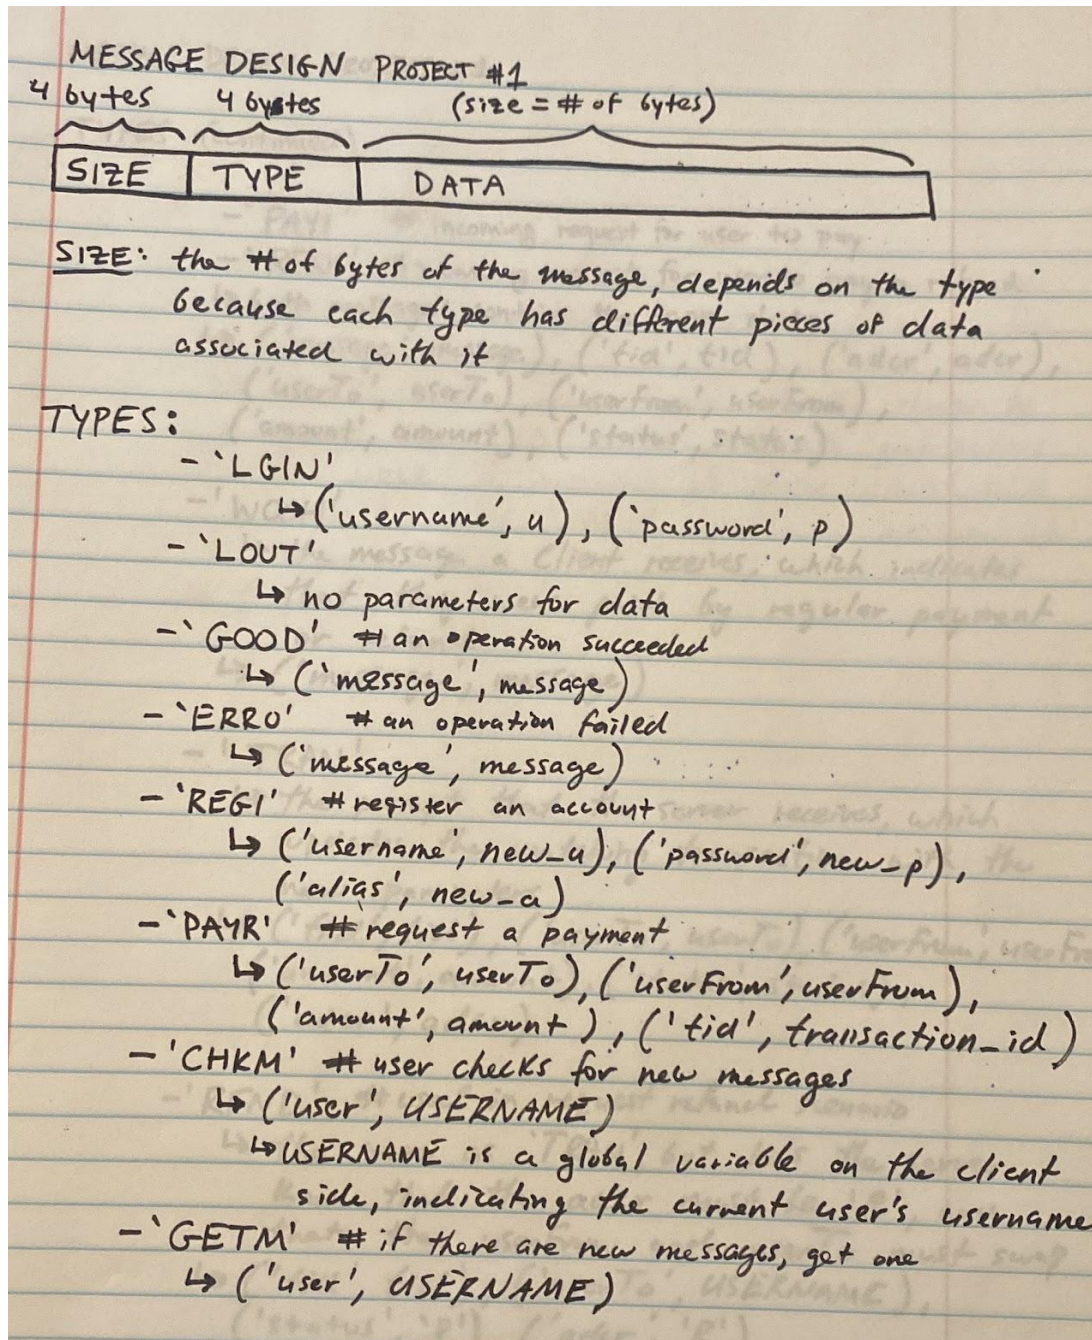 MESSAGE DESIGN PROJECT #1
4 bytes 4 bytes (size = # of bytes)
SIZE TYPE DATA
SIZE: the # of bytes of the message, depends on the type
because each type has different pieces of data
associated with it
TYPES:
- 'LGIN'
↳ ('username', u), ('password', p)
- 'LOUT'
↳ no parameters for data
- 'GOOD' # an operation succeeded
↳ ('message', message)
- 'ERRO' # an operation failed
↳ ('message', message)
- 'REGI' # register an account
↳ ('username', new_u), ('password', new_p),
('alias', new_a)
- 'PAYR' # request a payment
↳ ('userTo', userTo), ('userFrom', userFrom),
('amount', amount), ('tid', transaction_id)
- 'CHKM' # user checks for new messages
↳ ('user', USERNAME)
↳ USERNAME is a global variable on the client
side, indicating the current user's username
- 'GETM' # if there are new messages, get one
↳ ('user', USERNAME)